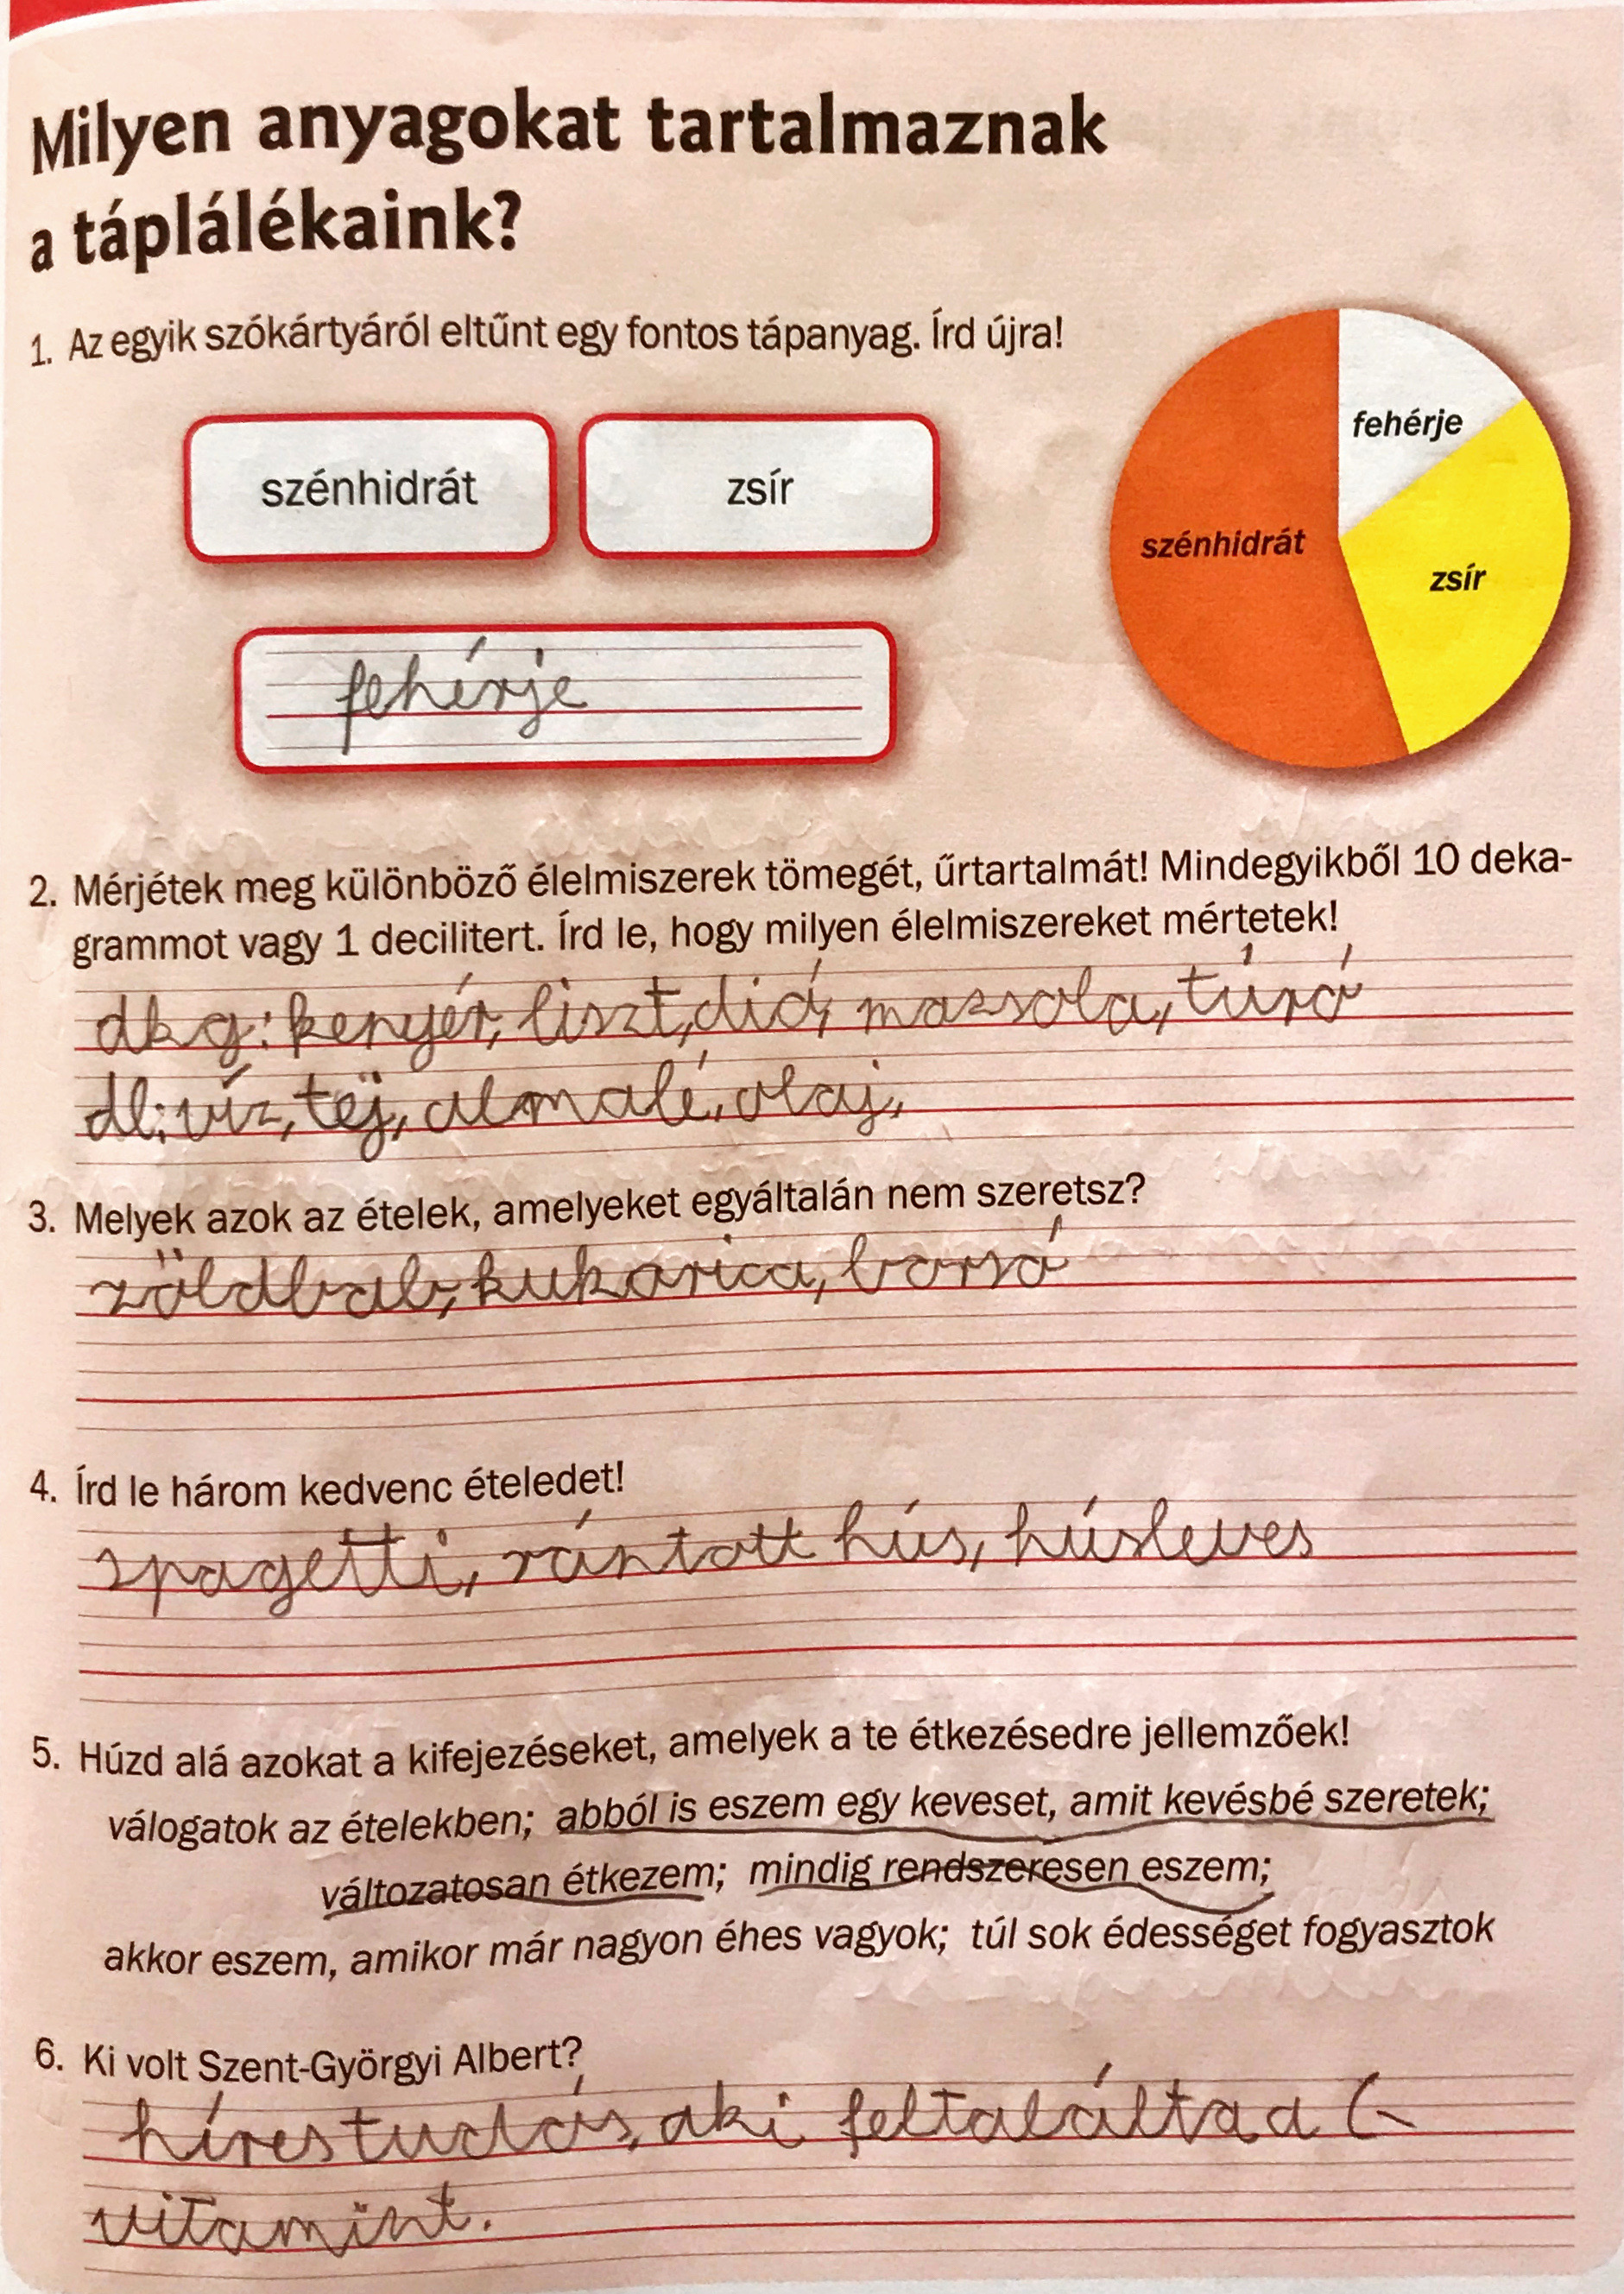 Milyen anyagokat tartalmaznak
a táplálékaink?
1. Az egyik szókártyáról eltűnt egy fontos tápanyag. Írd újra!
szénhidrát
zsír
fehérje
fehérje
szénhidrát
zsír
2. Mérjétek meg különböző élelmiszerek tömegét, űrtartalmát! Mindegyikből 10 deka-
grammot vagy 1 decilitert. Írd le, hogy milyen élelmiszereket mértetek!
dkg: kenyér, liszt, dió, mazsola, túró
dl: víz, tej, almalé, olaj,
3. Melyek azok az ételek, amelyeket egyáltalán nem szeretsz?
zöldbab, kukorica, borsó
4. Írd le három kedvenc ételedet!
spagetti, rántott hús, húsleves
5. Húzd alá azokat a kifejezéseket, amelyek a te étkezésedre jellemzőek!
válogatok az ételekben; abból is eszem egy keveset, amit kevésbé szeretek;
változatosan étkezem; mindig rendszeresen eszem;
akkor eszem, amikor már nagyon éhes vagyok; túl sok édességet fogyasztok
6. Ki volt Szent-Györgyi Albert?
híres tudós, aki feltalálta a C-
vitamint.